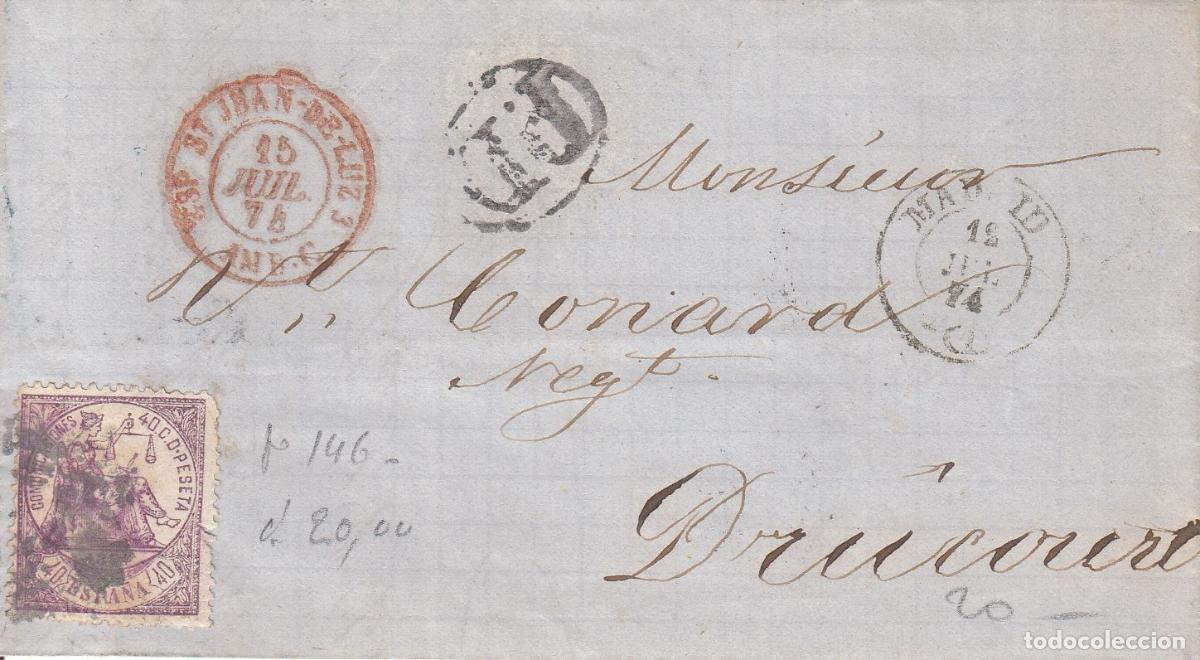 ESP ST JEAN-DE-LUZ 3
15
JUIL.
74
AMB. C
PD
Monsieur
MADRID
12
JUL
74
Vt. Conard
Negt.
Drucourt
COMUNICACIONES 40 C. D. PESETA
40 ESPAÑA 40
146 -
d. 20,00
20 -
todocoleccion